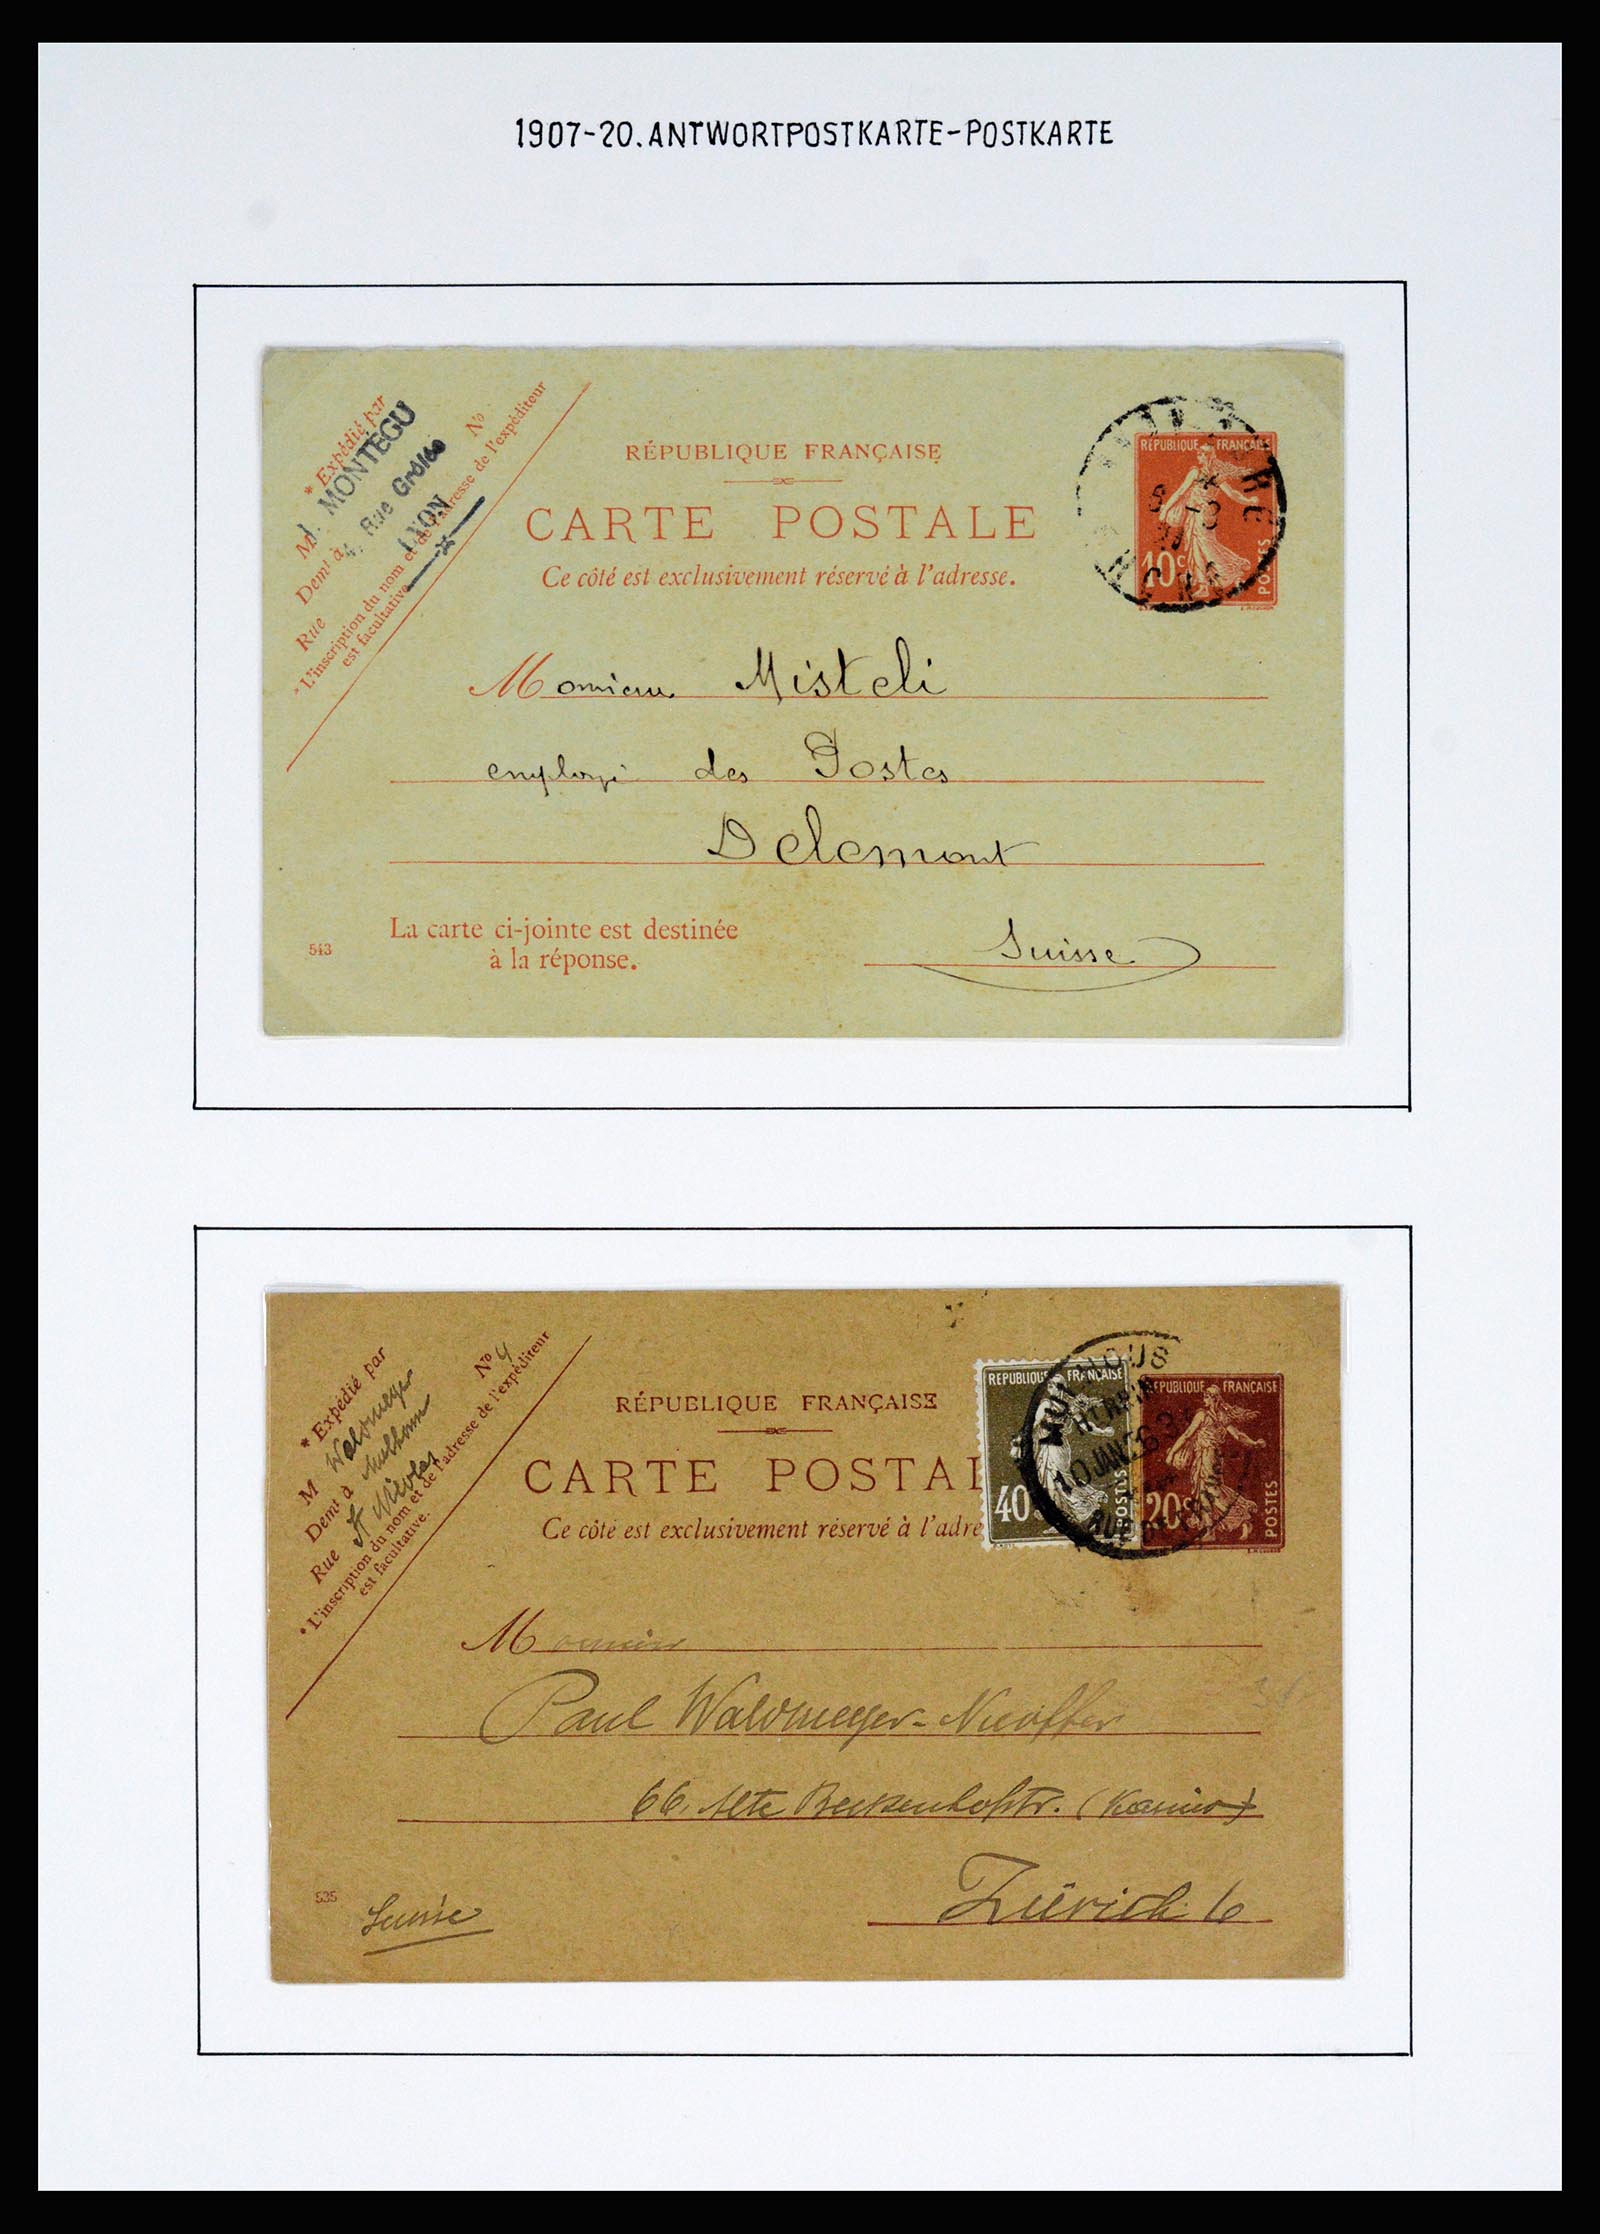 1907-20. ANTWORTPOSTKARTE-POSTKARTE
* Expédié par
M J. MONTÉGU
Demt à 4, Rue Grôlée
LYON
Rue No
* L'inscription du nom et de l'adresse de l'expéditeur
est facultative.
RÉPUBLIQUE FRANÇAISE
CARTE POSTALE
Ce côté est exclusivement réservé à l'adresse.
RÉPUBLIQUE FRANÇAISE
10c POSTES
Monsieur Misteli
employé des Postes
Delemont
Suisse
543
La carte ci-jointe est destinée
à la réponse.
* Expédié par
M Waldmeyer
Demt à Mulhouse
Rue St Nicolas No 4
* L'inscription du nom et de l'adresse de l'expéditeur
est facultative.
RÉPUBLIQUE FRANÇAISE
CARTE POSTAL
Ce côté est exclusivement réservé à l'adre
REPUBLIQUE FRANÇAISE
40c POSTES
REPUBLIQUE FRANÇAISE
20c POSTES
Monsieur
Paul Waldmeyer-
66, Alte Beckenhofstr. (Kasino)
Zürich 6
535
Suisse